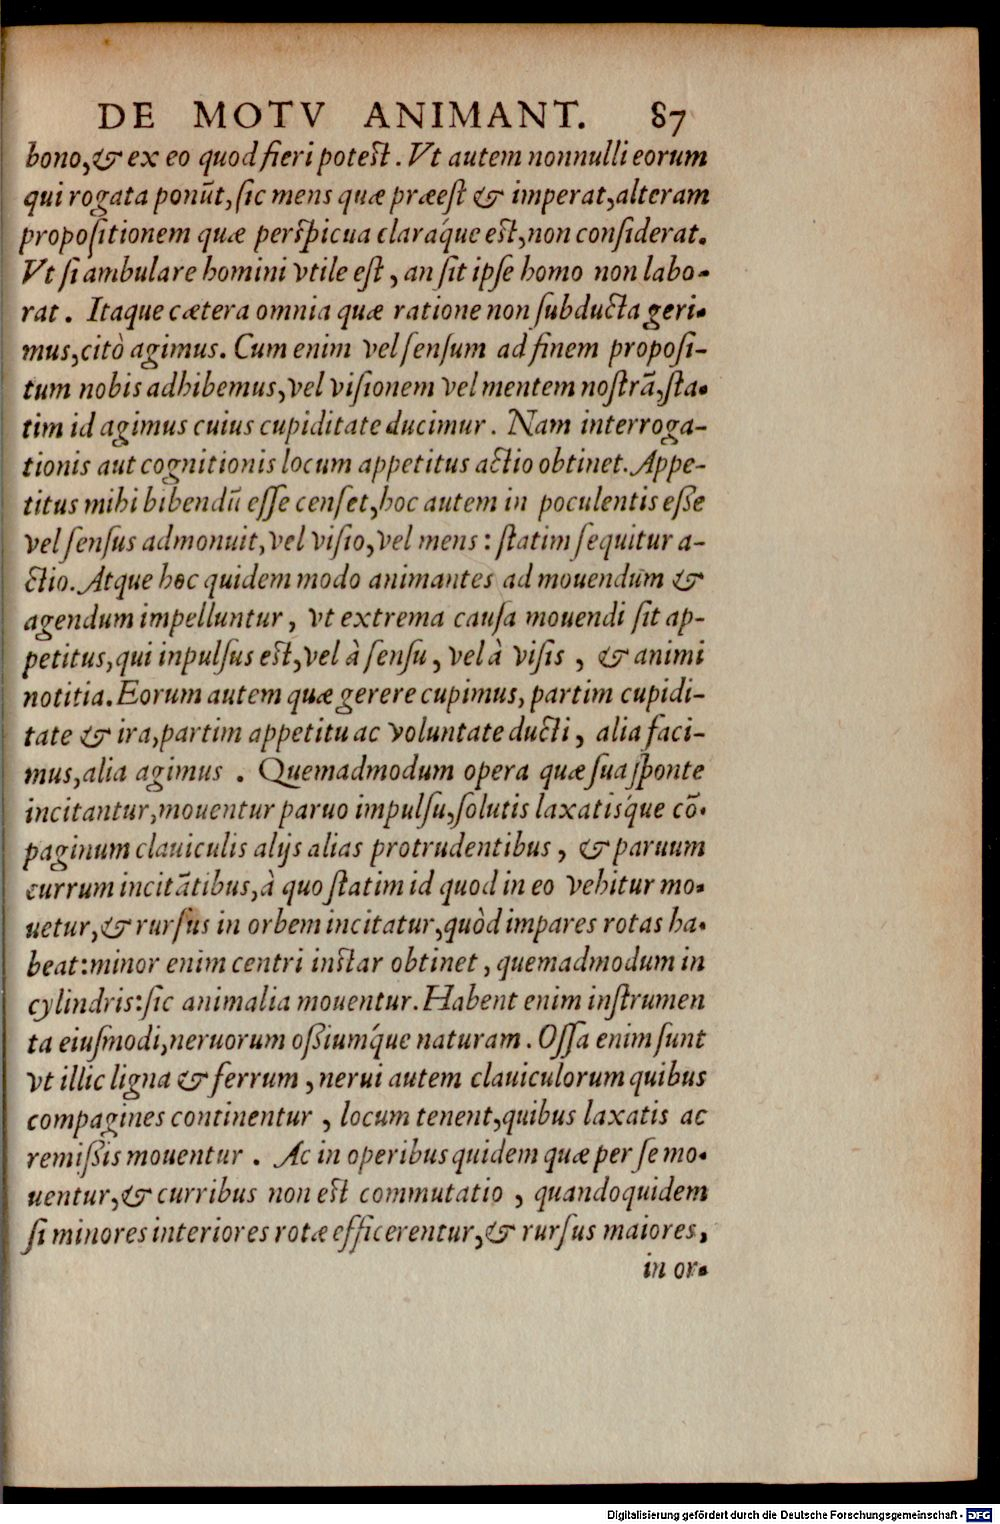 DE MOTV ANIMANT. 87
bono, & ex eo quod fieri potest. Vt autem nonnulli eorum
qui rogata ponūt, sic mens quæ præest & imperat, alteram
propositionem quæ perspicua claráque est, non considerat.
Vt si ambulare homini vtile est, an sit ipse homo non labo-
rat. Itaque cætera omnia quæ ratione non subducta geri-
mus, citò agimus. Cum enim vel sensum ad finem proposi-
tum nobis adhibemus, vel visionem vel mentem nostrā, sta-
tim id agimus cuius cupiditate ducimur. Nam interroga-
tionis aut cognitionis locum appetitus actio obtinet. Appe-
titus mihi bibendū esse censet, hoc autem in poculentis eße
vel sensus admonuit, vel visio, vel mens: statim sequitur a-
ctio. Atque hoc quidem modo animantes ad mouendum &
agendum impelluntur, vt extrema causa mouendi sit ap-
petitus, qui inpulsus est, vel à sensu, vel à visis, & animi
notitia. Eorum autem quæ gerere cupimus, partim cupidi-
tate & ira, partim appetitu ac voluntate ducti, alia faci-
mus, alia agimus. Quemadmodum opera quæ sua sponte
incitantur, mouentur paruo impulsu, solutis laxatisque cō-
paginum clauiculis alijs alias protrudentibus, & paruum
currum incitātibus, à quo statim id quod in eo vehitur mo-
uetur, & rursus in orbem incitatur, quòd impares rotas ha-
beat: minor enim centri instar obtinet, quemadmodum in
cylindris: sic animalia mouentur. Habent enim instrumen
ta eiusmodi, neruorum oßiumque naturam. Ossa enim sunt
vt illic ligna & ferrum, nerui autem clauiculorum quibus
compagines continentur, locum tenent, quibus laxatis ac
remißis mouentur. Ac in operibus quidem quæ per se mo-
uentur, & curribus non est commutatio, quandoquidem
si minores interiores rotæ efficerentur, & rursus maiores,
in or-
Digitalisierung gefördert durch die Deutsche Forschungsgemeinschaft - DFG